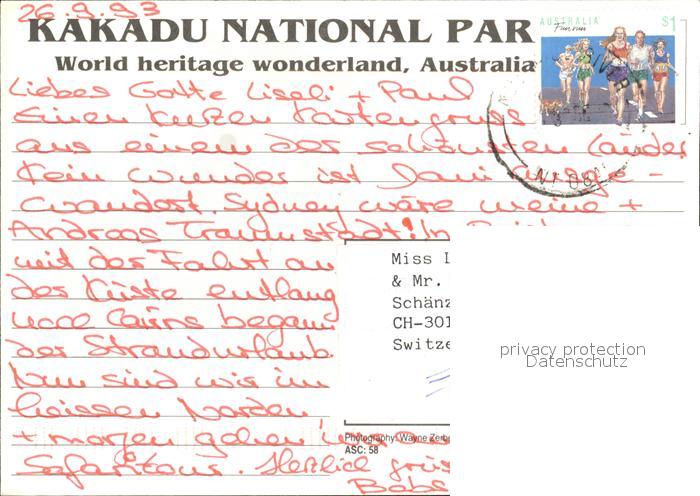 26.9.93
KAKADU NATIONAL PAR
World heritage wonderland, Australia
AUSTRALIA $1
Fun run
Liebes Gotte Liseli + Paul
Einen kurzen Kartengruss
aus einem der schönsten Länder
Kein Wunder ist Dani ausge-
wandert. Sydney wäre meine +
Andreas Traumstadt! In
mit der Fahrt an
der Küste entlang
nach Cairns begann
der Strandurlaub.
Nun sind wir im
heissen Norden
+ morgen gehen wir
Safaritour. Herzlich
Babs
NT 08
Miss L
& Mr.
Schänz
CH-301
Switze
Photography: Wayne Zerbe
ASC: 58
privacy protection
Datenschutz